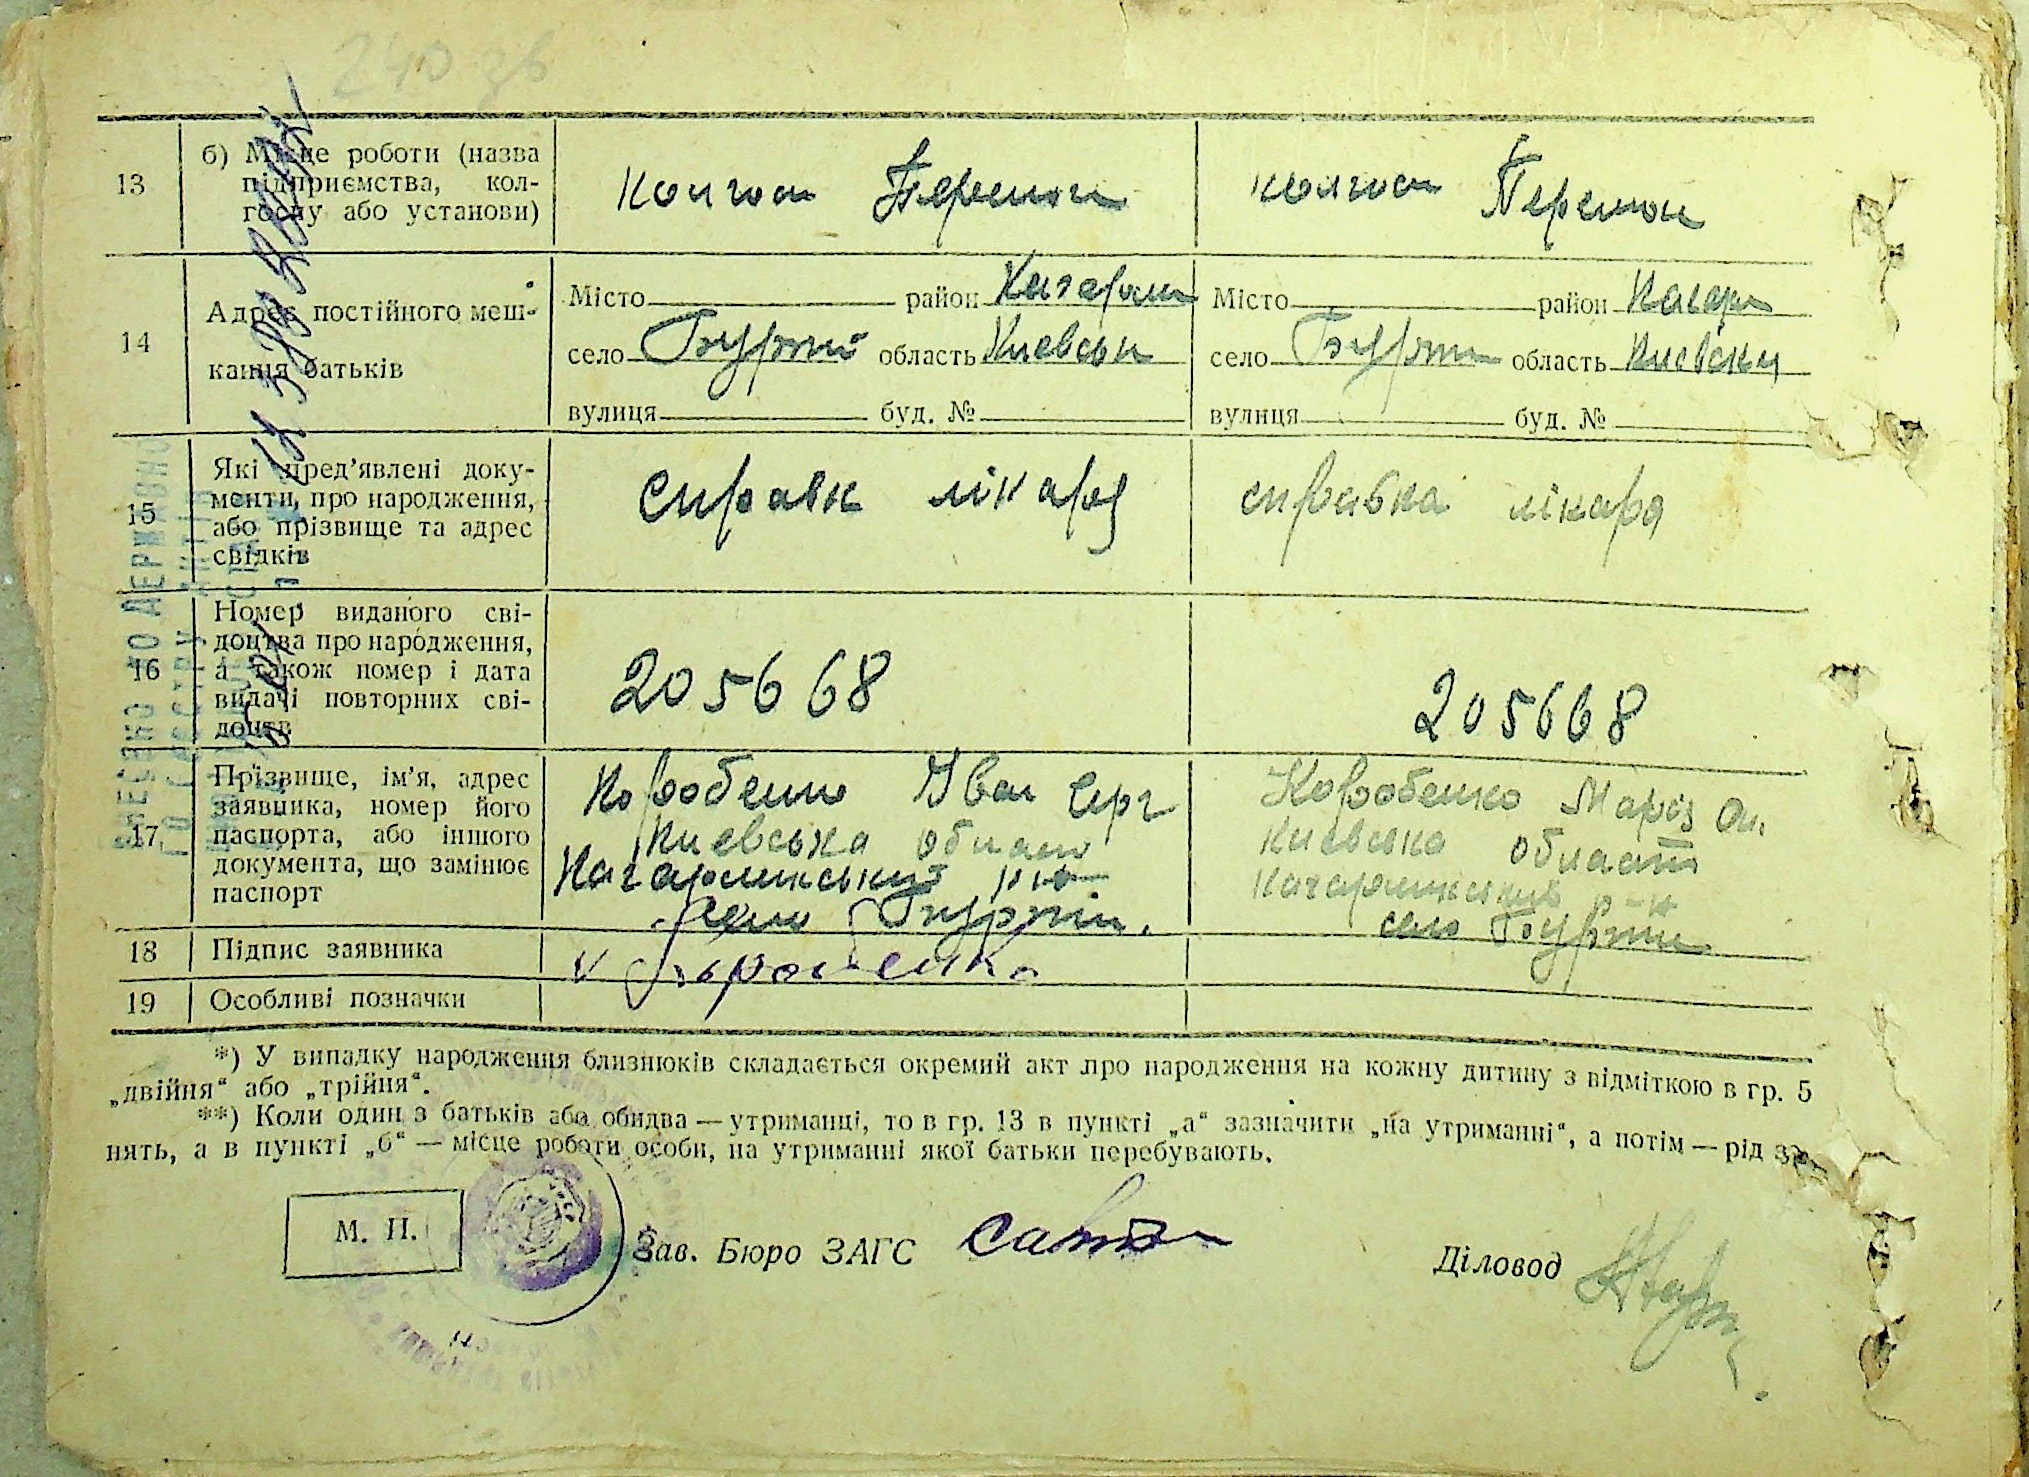 240 зв
13
б) Місце роботи (назва
підприємства, кол-
госпу або установи)
колгосп Перемог
колгосп Перемог
14
Адрес постійного меш-
кання батьків
Місто район Кагарли
село Бурти область Киевськ
вулиця буд. №
Місто район Кагар
село Бурти область Киевськ
вулиця буд. №
15
Які пред'явлені доку-
менти, про народження,
або прізвище та адрес
свідків
справк лікаря
справка лікаря
16
Номер виданого сві-
доцтва про народження,
а також номер і дата
видачі повторних сві-
доцтв
205668
205668
17
Прізвище, ім'я, адрес
заявника, номер його
паспорта, або іншого
документа, що замінює
паспорт
Коробенко Иван
Киевська област
Кагарлинський р-н
село Бурти.
Коробенко Марія
Киевська област
Кагарлинський р-н
село Бурти
18
Підпис заявника
19
Особливі позначки
*) У випадку народження близнюків складається окремий акт про народження на кожну дитину з відміткою в гр. 5
„двійня“ або „трійня“.
**) Коли один з батьків або обидва — утриманці, то в гр. 13 в пункті „а“ зазначити „на утриманні“, а потім — рід за-
нять, а в пункті „б“ — місце роботи особи, на утриманні якої батьки перебувають.
М. П.
Зав. Бюро ЗАГС
Діловод
ВНЕСЕНО ДО ДЕРЖАВНО
ГО РЕЄСТРУ АКТІВ